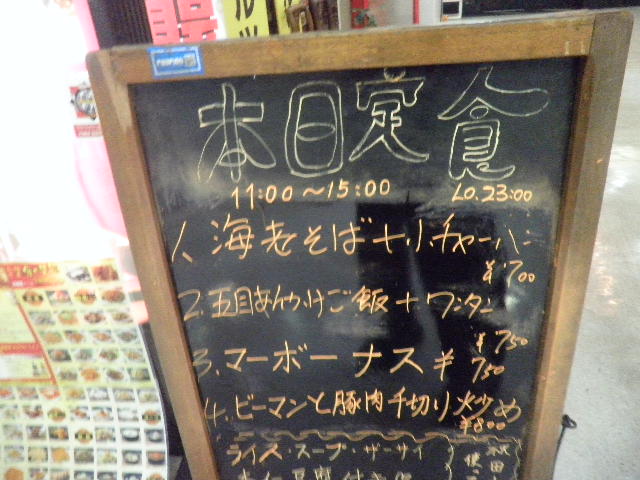 本日定食
11:00～15:00 LO.23:00
1、海老そば+小チャーハン
¥700
2.五目あんかけご飯+ワンタン
¥750
3.マーボーナス¥750
4.ピーマンと豚肉千切り炒め
¥800
ライス・スープ・ザーサイ